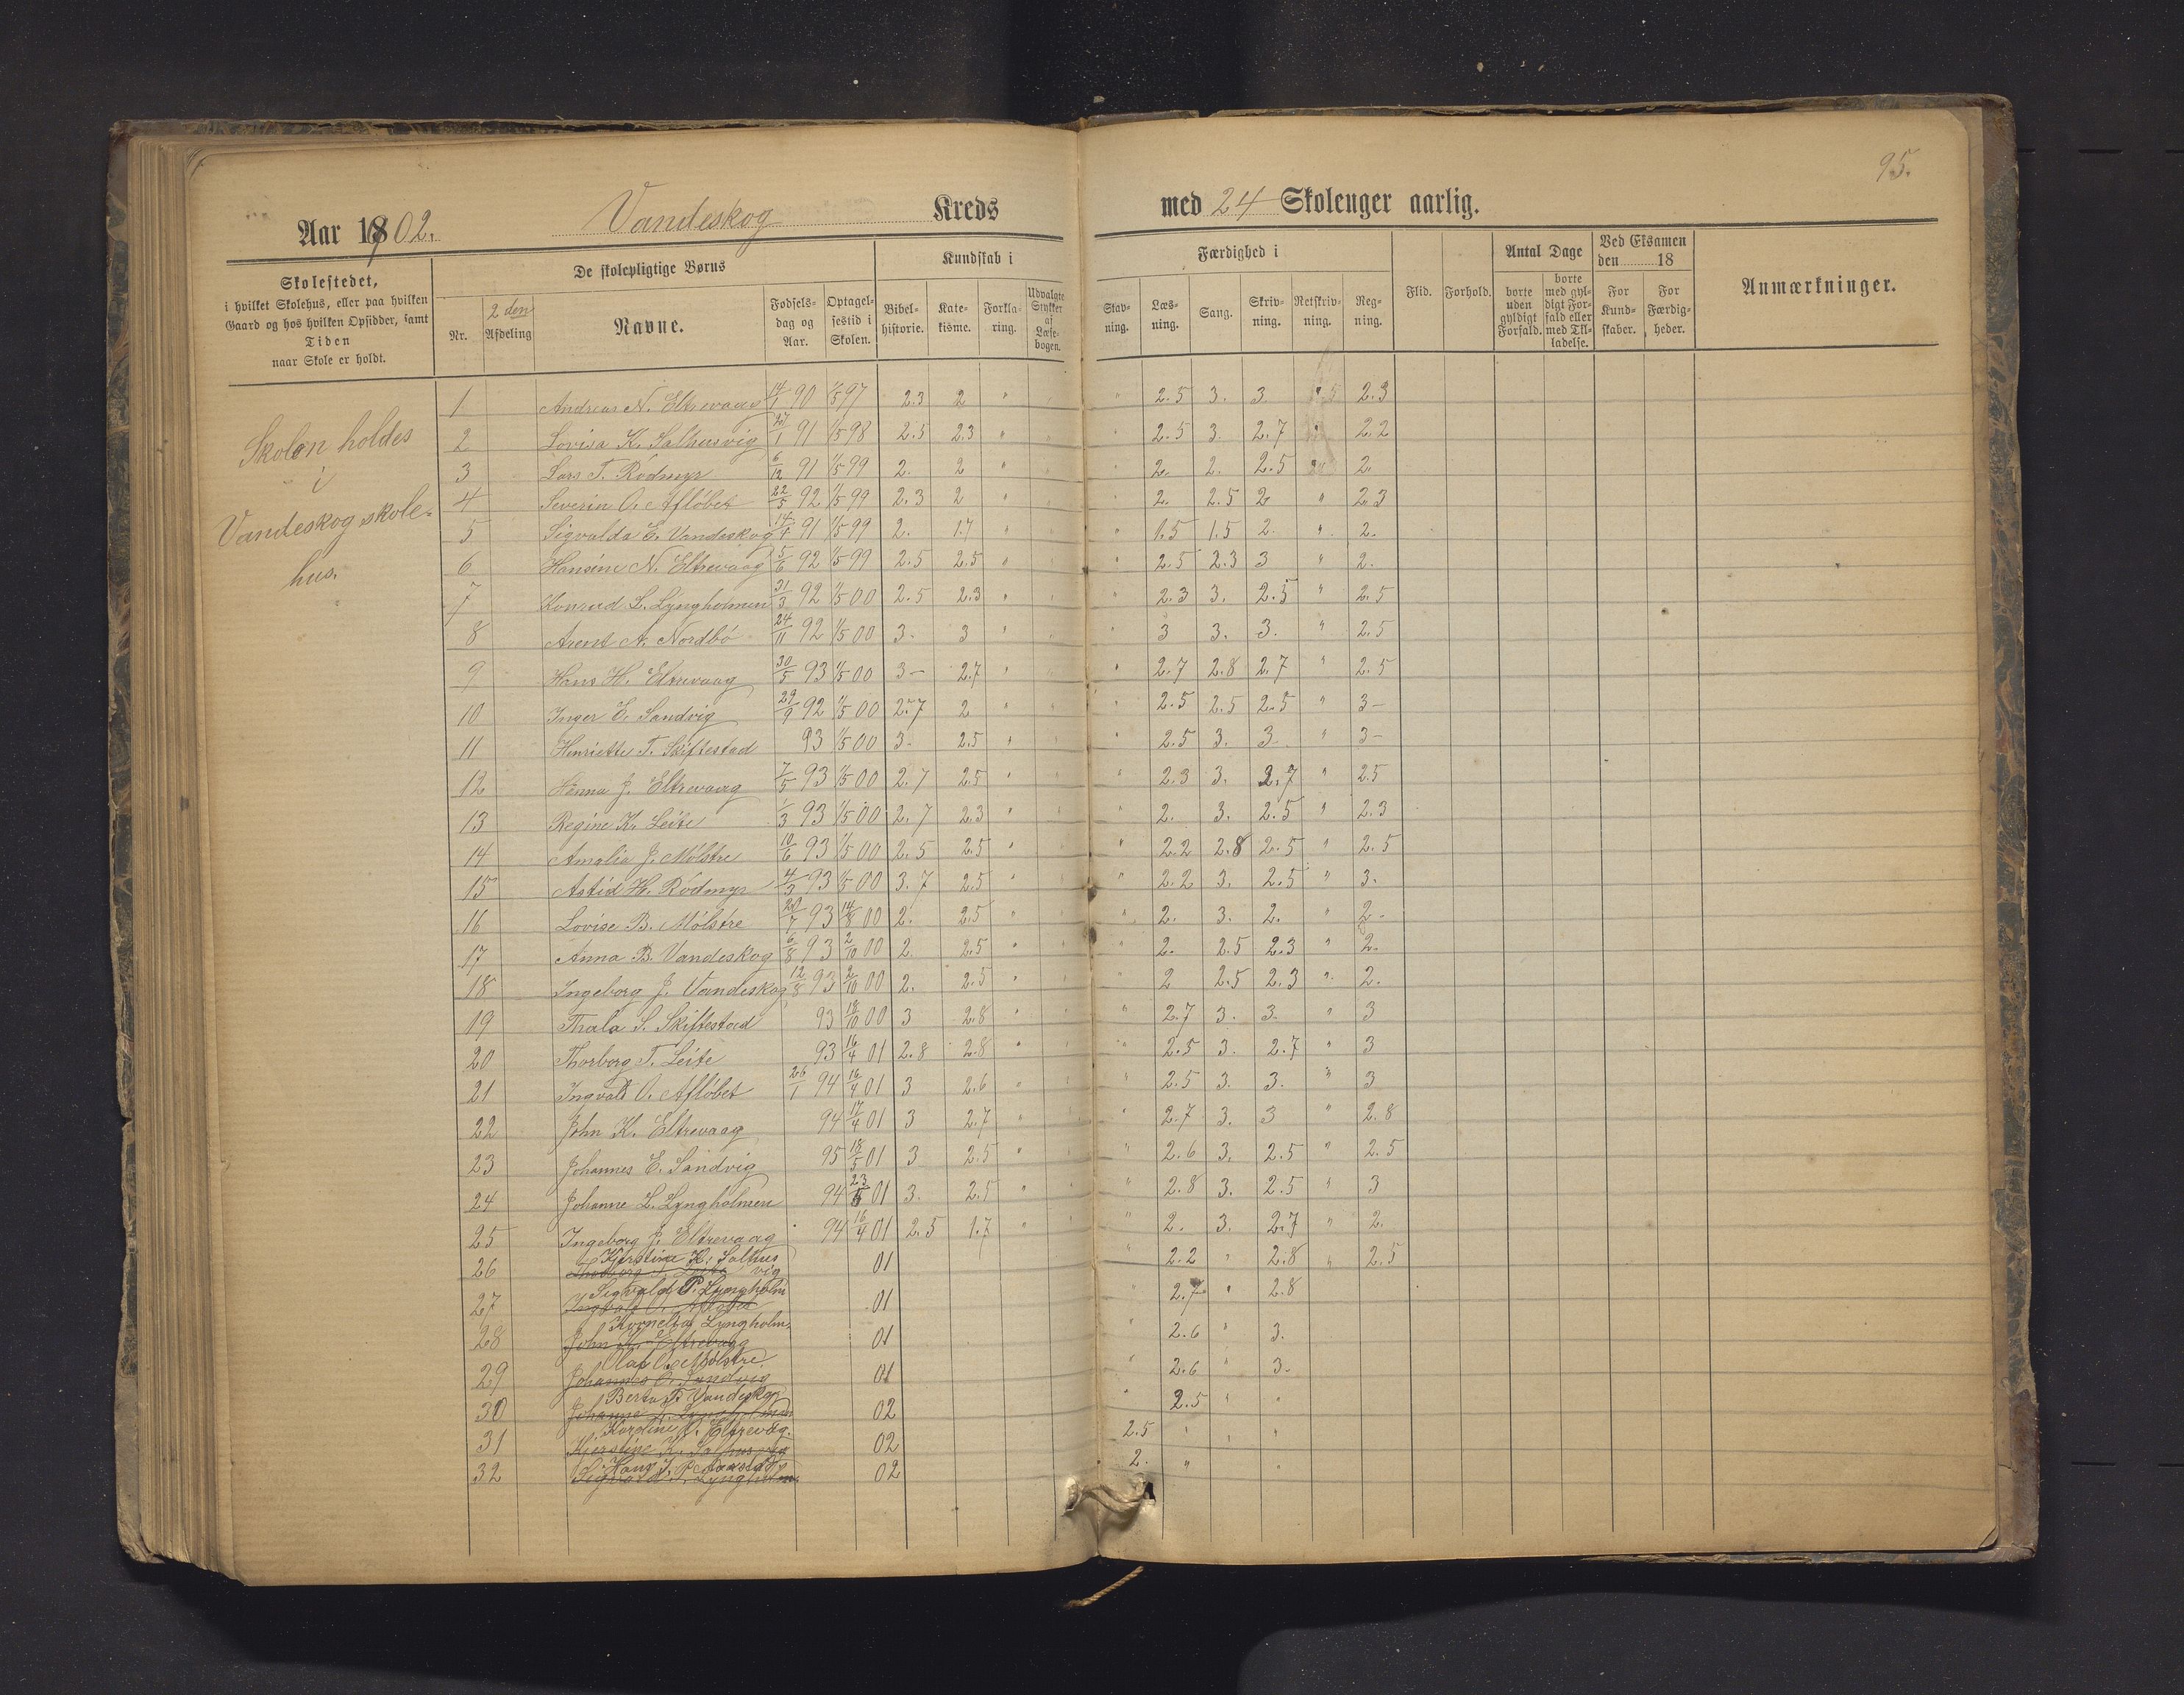 95.
Aar 1902. Vandeskog Kreds med 24 Skoleuger aarlig.
Skolestedet,
i hvilket Skolehus, eller paa hvilken
Gaard og hos hvilken Opsidder, samt
Tiden
naar Skole er holdt.
De skolepligtige Børns
Nr. 2den Afdeling Navne. Fødselsdag og Aar. Optagelsestid i Skolen.
Kundskab i
Bibelhistorie. Katekisme. Forklaring. Udvalgte Stykker af Læsebogen.
Færdighed i
Stavning. Læsning. Sang. Skrivning. Retskrivning. Regning.
Flid. Forhold.
Antal Dage
borte uden gyldigt Forfald. borte med gyldigt Forfald eller med Tilladelse.
Ved Eksamen den 18
For Kundskaber. For Færdigheder.
Anmærkninger.
Skolen holdes
i
Vandeskog skole-
hus.
1 Andreas N. Eltrevaag 14/1 90 1/5 97 2.3 2 " " 2.5 3. 3. 2.3
2 Lovisa K. Salhusvig 27/1 91 1/5 98 2.5 2.3 " " 2.5 3. 2.7 " 2.2
3 Lars T. Rödmyr 6/12 91 1/5 99 2. 2 " " 2. 2. 2.5 2.
4 Severin O. Aflöbet 22/5 92 1/5 99 2.3 2 " " 2. 2.5 2 " 2.3
5 Sigvalda E. Vandeskog 91 1/5 99 2. 1.7 " " 1.5 1.5 2. " 2.
6 Hansine N. Eltrevaag 5/6 92 1/5 99 2.5 2.5 " " 2.5 2.3 3 " 2.
7 Konrad L. Lyngholmen 31/3 92 1/5 00 2.5 2.3 " " 2.3 3. 2.5 " 2.5
8 Arent A. Nordbö 24/11 92 1/5 00 3. 3 " " 3 3. 3. " 2.5
9 Hans H. Eltrevaag 30/5 93 1/5 00 3- 2.7 " " 2.7 2.8 2.7 " 2.5
10 Inger E. Sandvig 29/9 92 1/5 00 2.7 2 " " 2.5 2.5 2.5 " 3-
11 Henriette T. Skiftestad 93 1/5 00 3- 2.5 " " 2.5 3. 3- " 3-
12 Hanna J. Eltrevaag 7/5 93 1/5 00 2.7 2.5 " " 2.3 3. 2.7 " 2.5
13 Regine K. Leite 1/3 93 1/5 00 2.7 2.3 " " 2. 3. 2.5 " 2.3
14 Amalia J. Mölstre 10/6 93 1/5 00 2.5 2.5 " " 2.2 2.8 2.5 " 2.5
15 Astid H. Rödmyr 4/3 93 1/5 00 3.7 2.5 " " 2.2 3. 2.5 " 3.
16 Lovise B. Mölstre 20/7 93 14/8 00 2. 2.5 " " 2. 3. 2. " 2-
17 Anna B. Vandeskog 6/8 93 2/10 00 2. 2.5 " " 2. 2.5 2.3 " 2.
18 Ingeborg J. Vandeskog 12/8 93 2/10 00 2. 2.5 " " 2 2.5 2.3 " 2.
19 Thala S. Skiftestad 93 18/10 00 3 2.8 " " 2.7 3. 3. " 3
20 Thorborg T. Leite 93 16/4 01 2.8 2.8 " " 2.5 3. 2.7 " 3
21 Ingvald O. Aflöbet 26/1 94 16/4 01 3 2.6 " " 2.5 3. 3. " 3
22 John K. Eltrevaag 94 17/4 01 3 2.7 " " 2.7 3. 3 " 2.8
23 Johannes E. Sandvig 95 18/5 01 3 2.5 " " 2.6 3. 2.5 " 2.5
24 Johanne L. Lyngholmen 94 23/5 01 3. 2.5 " " 2.8 3. 2.5 " 3
25 Ingeborg J. Eltrevaag 94 16/4 01 2.5 1.7 " " 2. 3. 2.7 " 2.
Kjerstina K. Salhus
26 Thorborg T. Leite vig 01 " 2.2 " 2.8 " 2.5
Sigvald P. Lyngholm
27 Ingvald O. Aflöbet 01 " 2.7 " 2.8
Kornelia Lyngholm.
28 John K. Eltrevaag 01 " 2.6 " 3.
Olaf O. Mölstre.
29 Johannes E. Sandvig 01 " 2.6 " 3.
Berta T. Vandeskog
30 Johanne L. Lyngholmen 02 " 2.5 " "
Karoline O. Eltrevåg.
31 Kjerstine K. Salhusvig 02 2.5 " " "
Hans J. P.
32 Sigvald P. Lyngholm. 02 2. " "